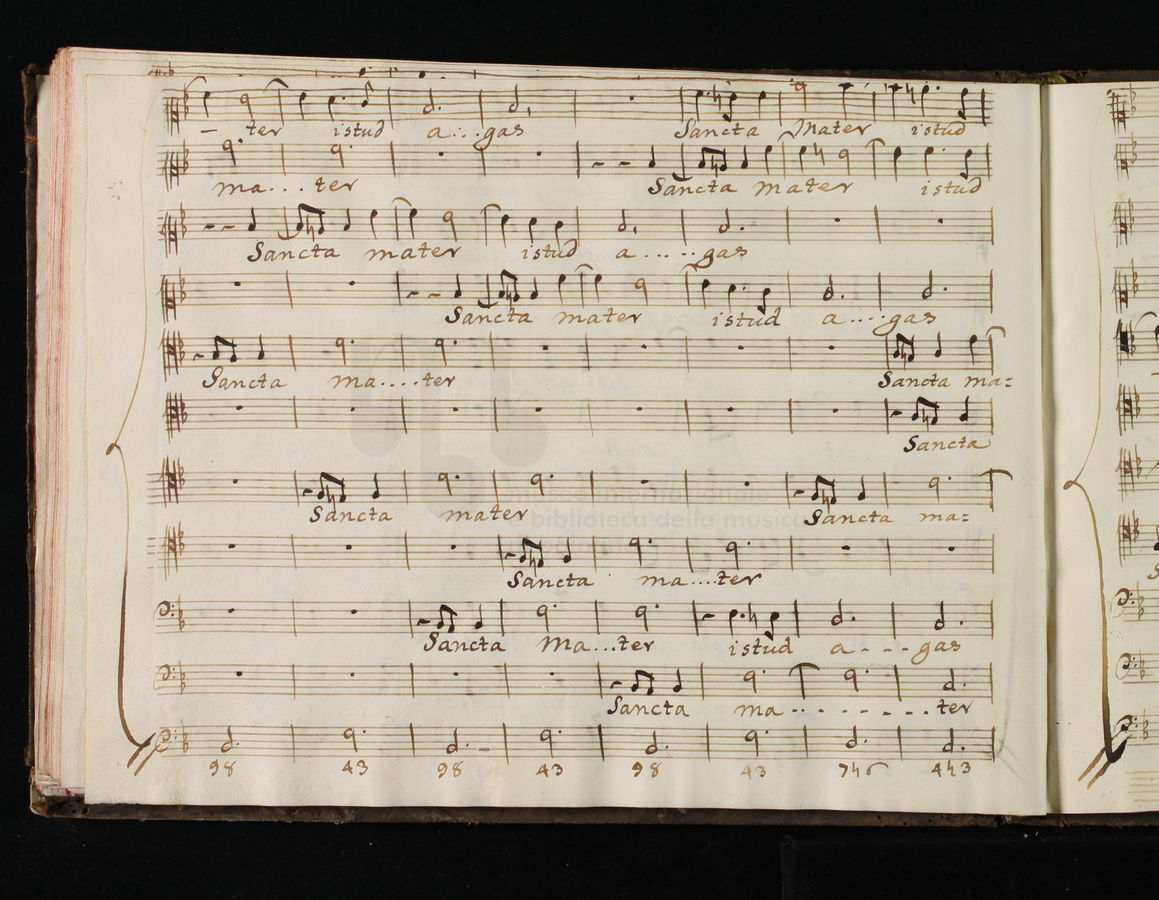 - ter istud a...gas Sancta Mater istud
ma...ter Sancta mater istud
Sancta mater istud a.....gas
Sancta mater istud a....gas
Sancta ma....ter Sancta ma=
Sancta
Sancta mater Sancta ma=
Sancta ma....ter
Sancta Ma...ter istud a---gas
Sancta ma........ter
98 43 98 43 98 43 746 443
museo internazionale
e biblioteca della musica